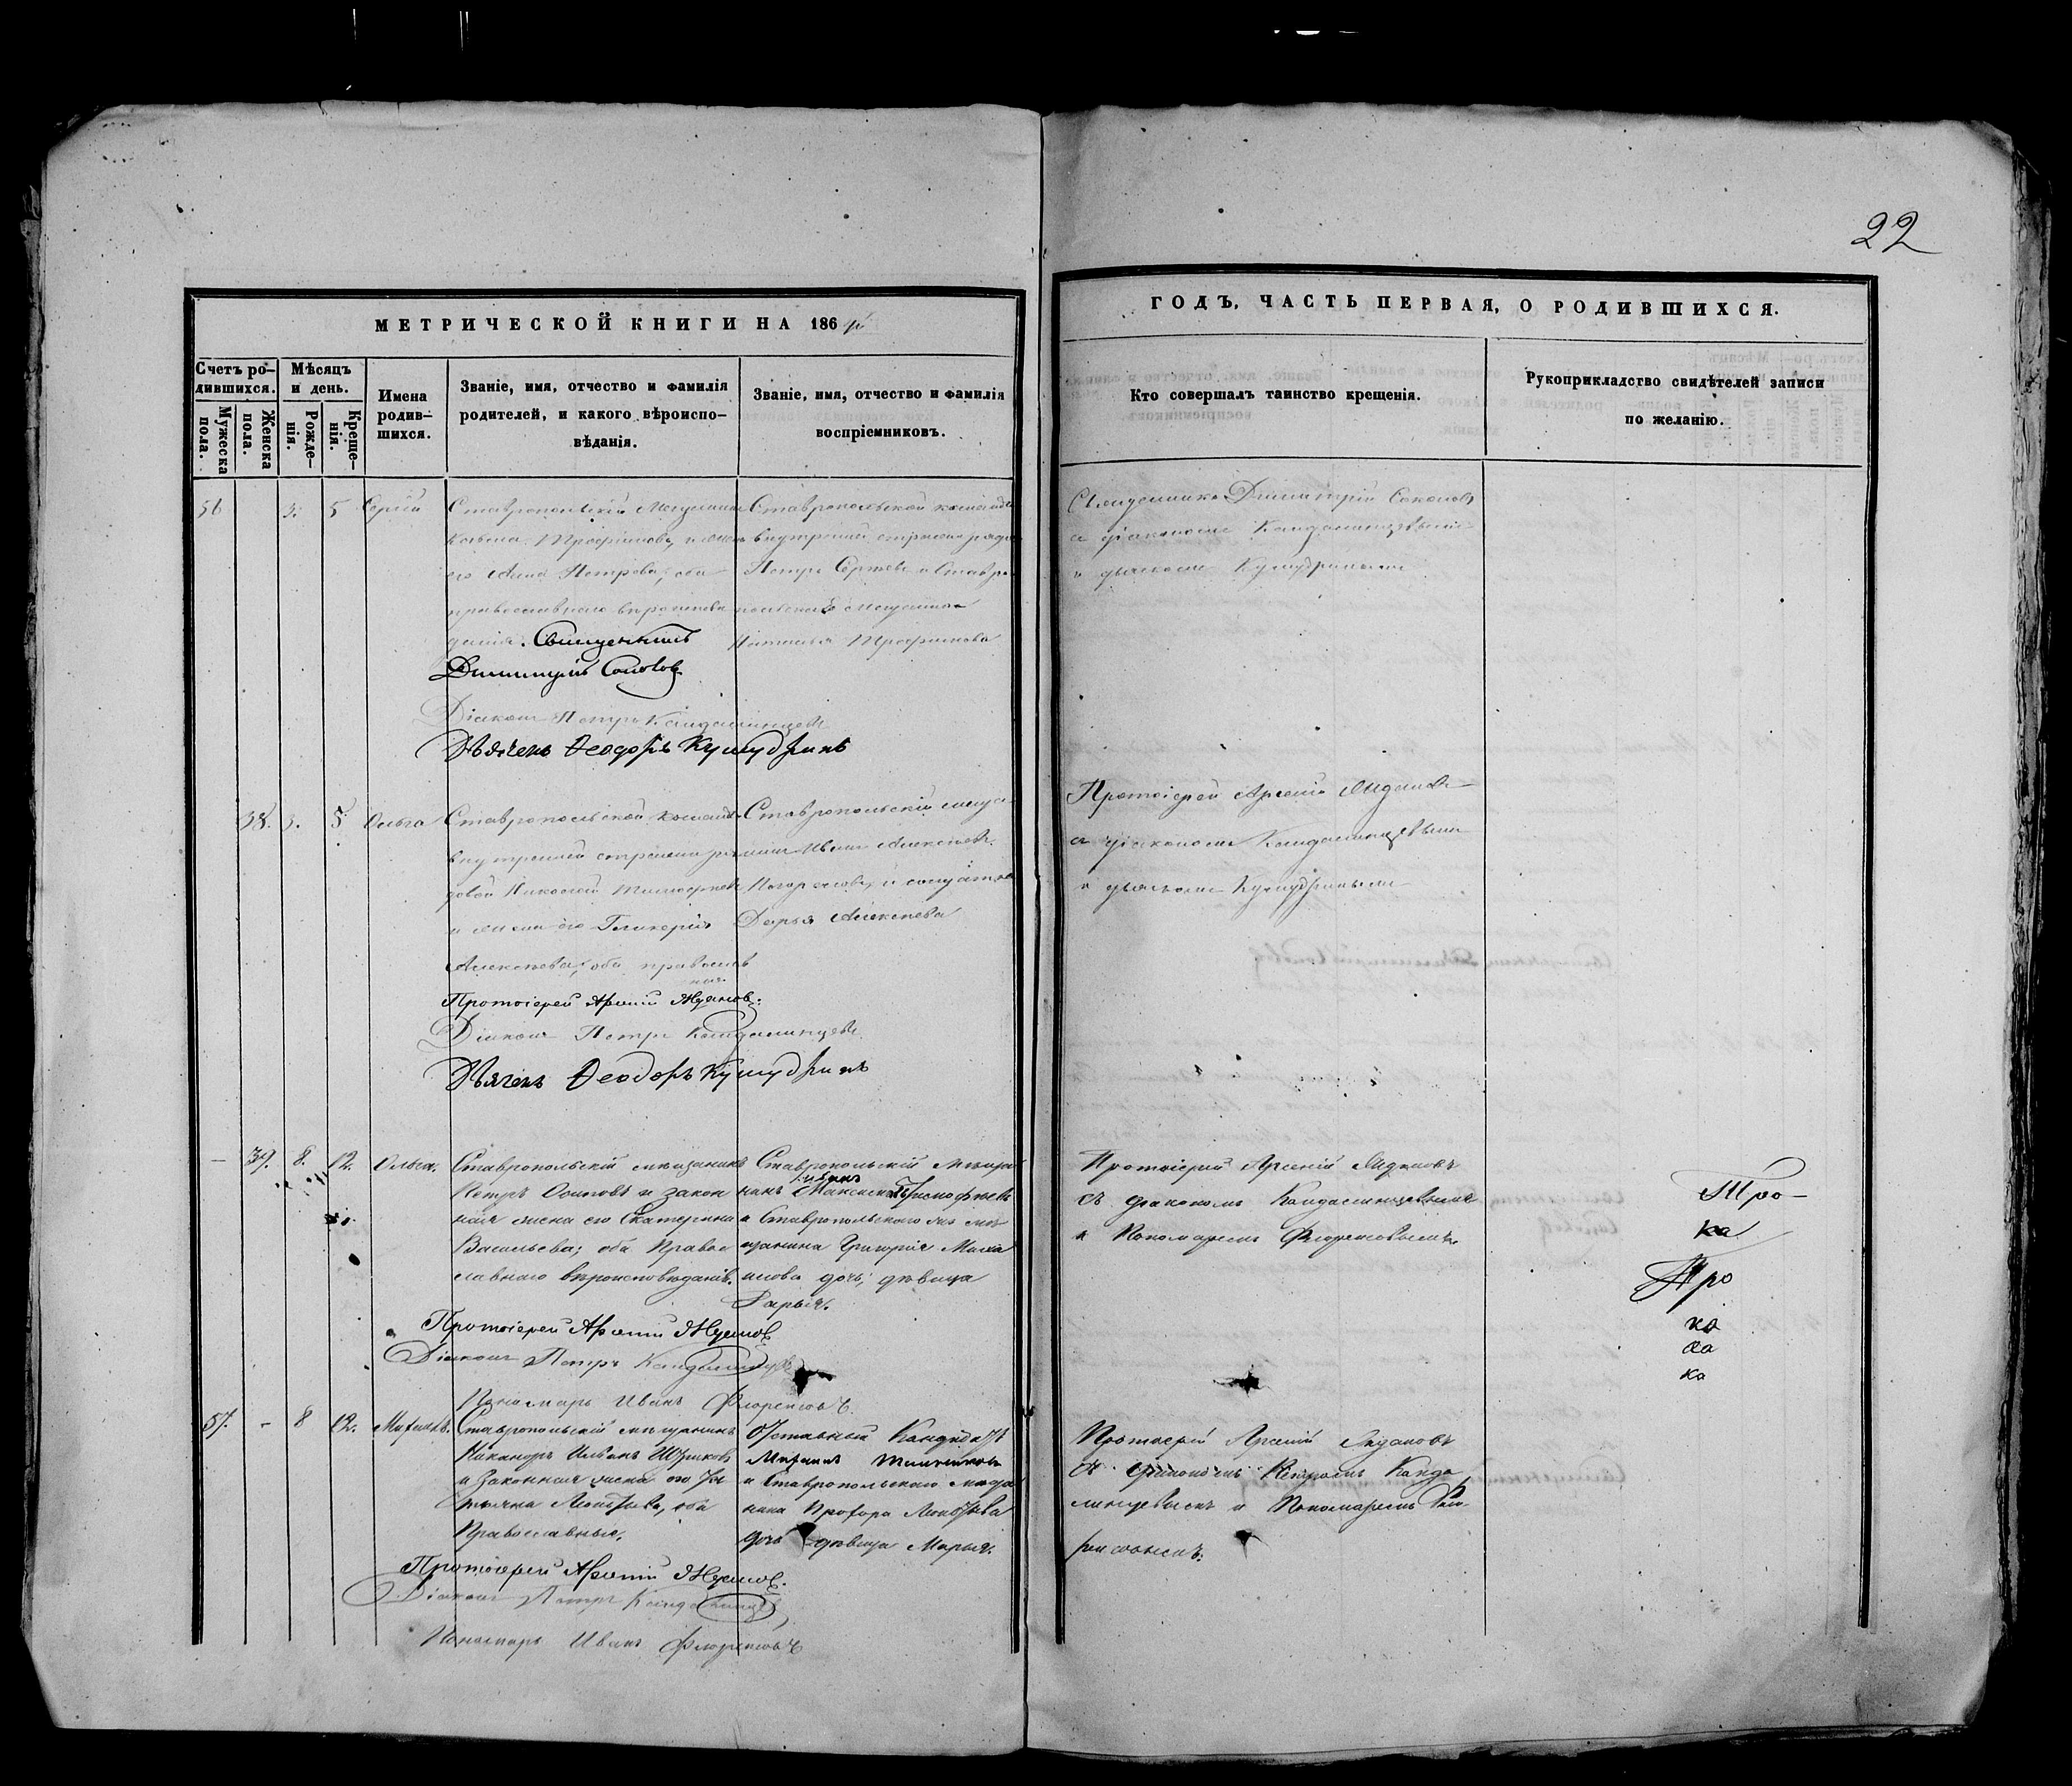 22
МЕТРИЧЕСКОЙ КНИГИ НА 186
ГОДЪ, ЧАСТЬ ПЕРВАЯ, О РОДИВШИХСЯ.
Счетъ ро-
дившихся.
Мужеска
пола.
Женска
пола.
Мѣсяцъ
и день.
Рожде-
нія.
Креще-
нія.
Имена
родив-
шихся.
Званіе, имя, отчество и фамилія
родителей, и какого вѣроиспо-
вѣданія.
Званіе, имя, отчество и фамилія
воспріемниковъ.
Кто совершалъ таинство крещенія.
Рукоприкладство свидѣтелей записи
по желанію.
56
3.
5
Сергій
Ставропольскій
Трофимовъ и жена
его Анна Петрова, оба
православнаго вероиспове
данія. Священникъ
Димитрій Соколовъ
Діаконъ Петръ Кандалинцевъ
Дьячекъ Ѳеодоръ Кумудринъ
Ставропольской команды
внутренней стражи рядо
Петръ Сергѣевъ и Ставро
польская мещанка
Наталья Трофимова
Священникъ Димитрій Соколовъ
съ діакономъ Кандалинцевымъ
и дьячкомъ Кумудринымъ
38.
3.
5
Ольга
Ставропольской команды
внутренней стражи ря
довой Николай Тимофеевъ
и жена его Гликерія
Алексѣева, оба православ
ные
Протоіерей Арсеній Ждановъ.
Діаконъ Петръ Кандалинцевъ
Дьячекъ Ѳеодоръ Кумудринъ
Ставропольскій меща
нинъ Иванъ Алексѣевъ
и солдатка
Дарья Алексѣева
Протоіерей Арсеній Ждановъ
съ діакономъ Кандалинцевымъ
и дьячкомъ Кумудринымъ
39.
8.
12.
Ольга.
Ставропольскій мѣщанинъ
Петръ Осиповъ и закон
ная жена его Екатерина
Васильева; оба Правос
лавнаго вѣроисповѣданія.
Протоіерей Арсеній Ждановъ
Діаконъ Петръ Кандалинцевъ
Пономарь Иванъ Флоренсовъ.
Ставропольскій мѣща
Иванъ
нинъ Тимофѣевъ
и Ставропольскаго же мѣ
щанина Григорія Миха
илова дочь, дѣвица
Дарья.
Протоіерей Арсеній Ждановъ
съ діакономъ Кандалинцевымъ
и Пономаремъ Флоренсовымъ.
Тро-
ка
Про
ка
ка
57.
-
8
12.
Михаилъ.
Ставропольскій мѣщанинъ
Никандръ Ильинъ
и законная жена его Та
тьяна Леонтьева, оба
Православные.
Протоіерей Арсеній Ждановъ.
Діаконъ Петръ Кандалинцевъ
Пономарь Иванъ Флоренсовъ
Отставный
Михаилъ
и Ставропольскаго меща
нина Прохора Леонтьева
дочь дѣвица Марья.
Протоіерей Арсеній Ждановъ
съ діакономъ Петромъ Канда
линцевымъ и Пономаремъ Фло
ренсовымъ.